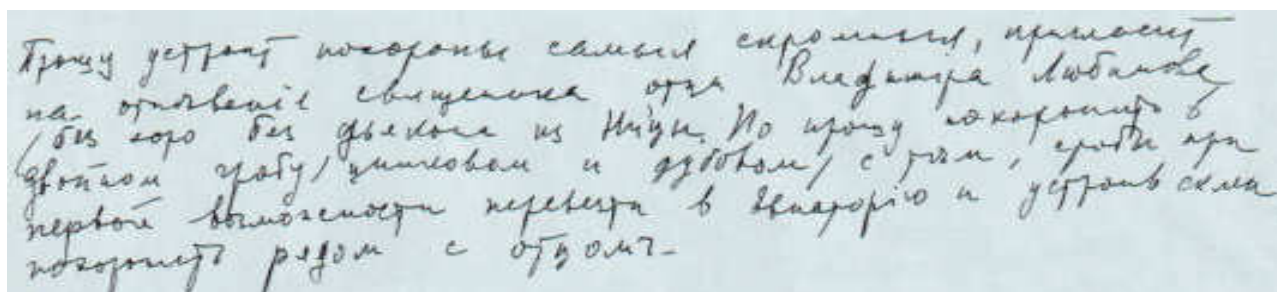 Прошу устроит похороны самыя скромныя, пригласит
на отпевание священика отца Владимира Любимова
/ без хора без дьякона из Ниццы. Но прошу похоронить в
двойном гробу / цинковом и дубовом / с тем, чтобы при
первой возможности перевезти в Эваторiю и устроив склеп
похоронить рядом с отцомъ-